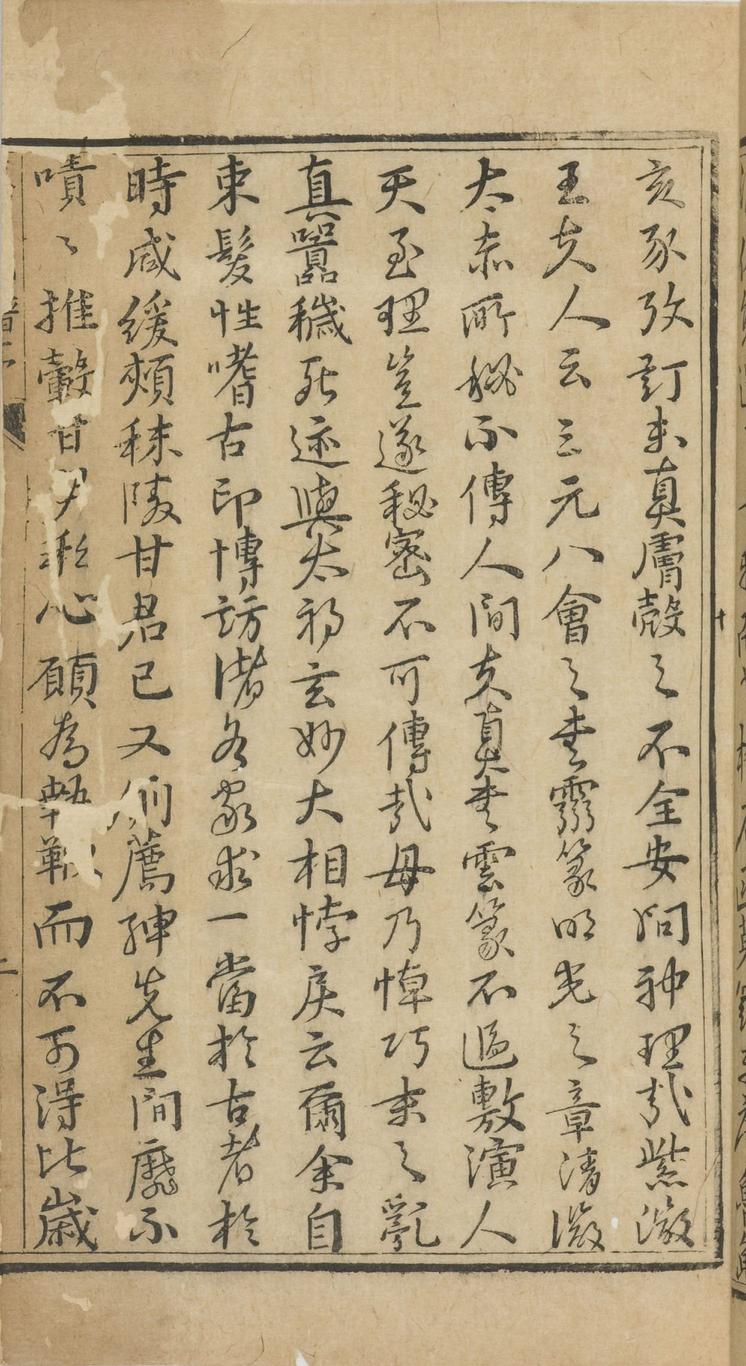 亥豕攷訂未真膚殼之不全安问神理哉紫微
王夫人云三元八會之書霛篆明光之章清微
太赤所秘不傳人间夫真書雲篆不過敷演人
天至理豈遂秘密不可傳哉毋乃悼巧末之亂
真嚣穢死迹與太初玄妙大相悖戾云爾余自
束髮性嗜古印博訪諸名家求一當於古者於
時咸緩頰秣陵甘君已又則薦紳先生间靡不
嘖〻推轂甘尹彩心願為執鞭而不可得比歲